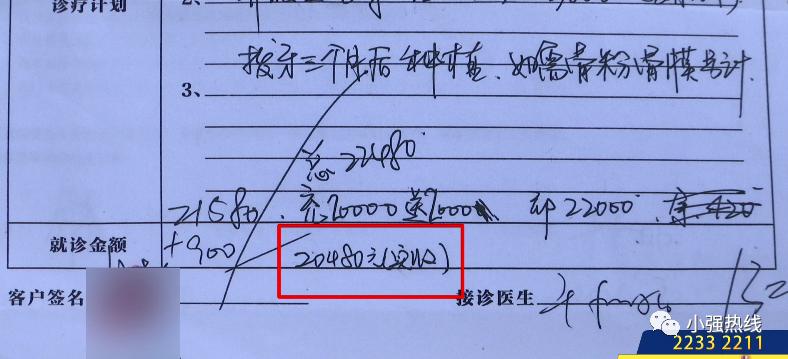 诊疗计划
2、
拔牙三个月后种植、如需骨粉骨膜另计
3、
总 22480
21580、充20000送2000 即22000
就诊金额 +900
20480元(实收)
客户签名 接诊医生
小强热线
2233 2211